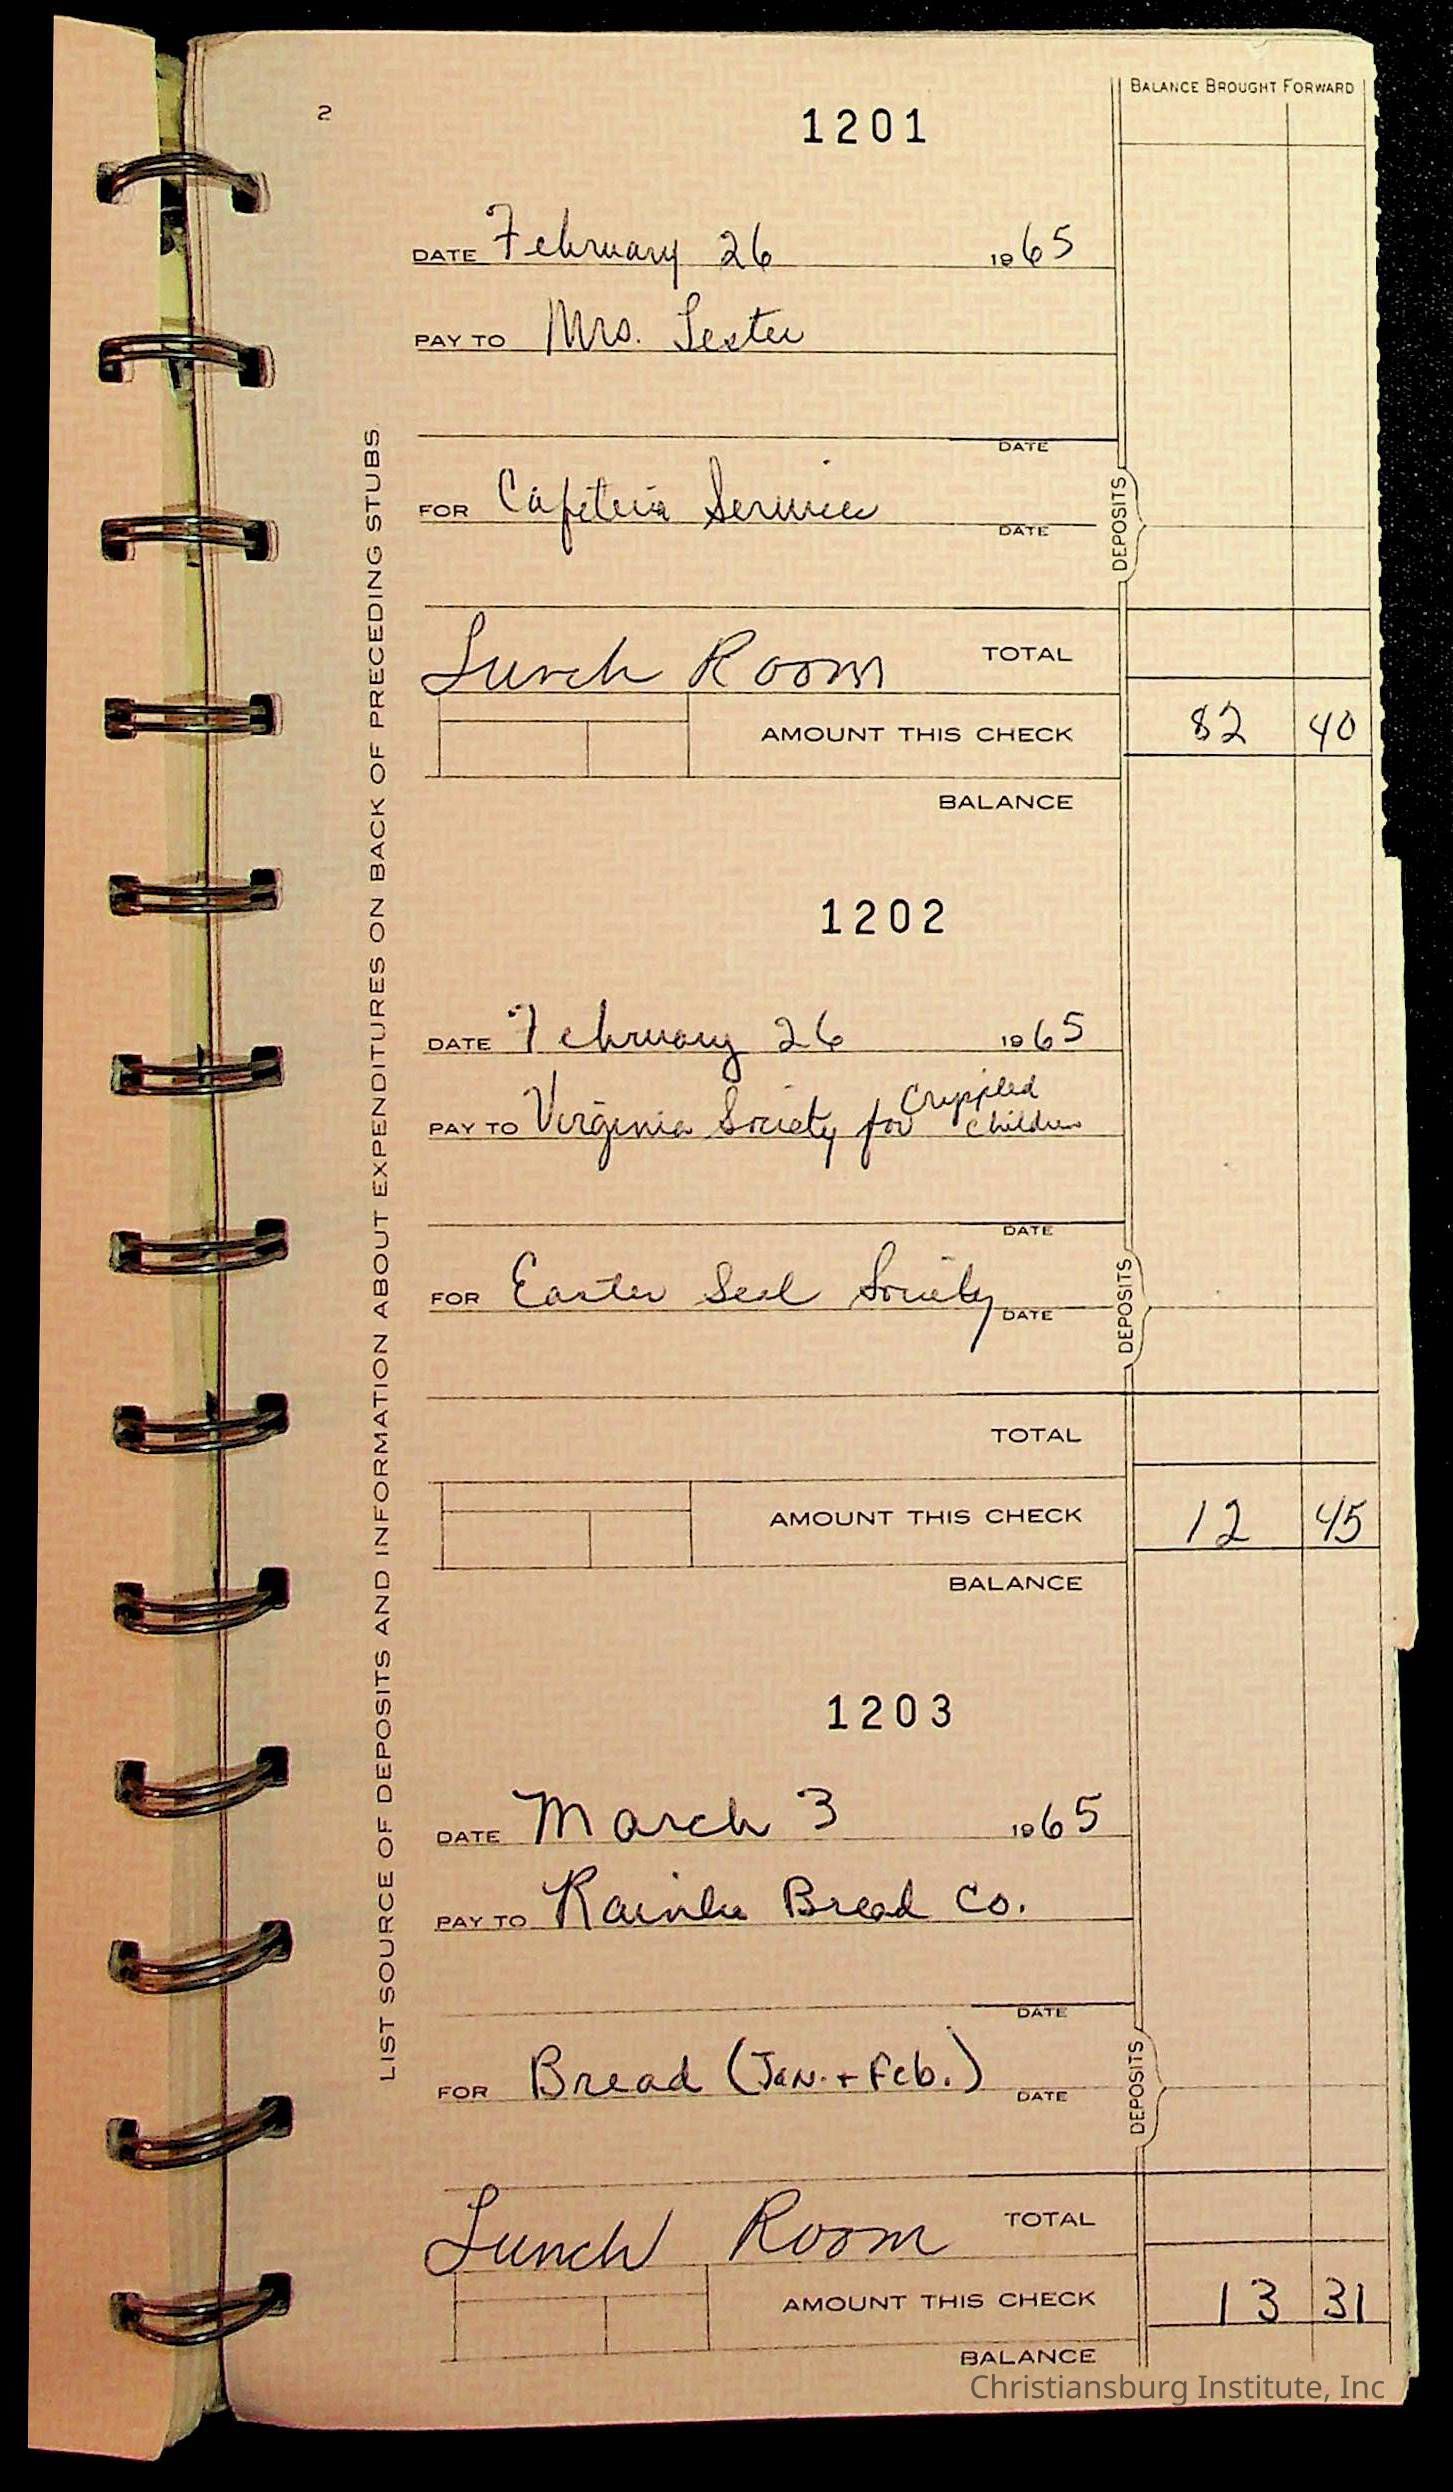 BALANCE BROUGHT FORWARD
2
1201
DATE February 26 1965
PAY TO Mrs. Lester
DATE
FOR Cafeteria Service
DATE
DEPOSITS
Lunch Room TOTAL
AMOUNT THIS CHECK 82 40
BALANCE
LIST SOURCE OF DEPOSITS AND INFORMATION ABOUT EXPENDITURES ON BACK OF PRECEDING STUBS
1202
DATE February 26 1965
PAY TO Virginia Society for Crippled
Children
DATE
FOR Easter Seal Society
DATE
DEPOSITS
TOTAL
AMOUNT THIS CHECK 12 45
BALANCE
1203
DATE March 3 1965
PAY TO Bread Co.
DATE
FOR Bread (Jan. + Feb.)
DATE
DEPOSITS
Lunch Room TOTAL
AMOUNT THIS CHECK 13 31
BALANCE
Christiansburg Institute, Inc